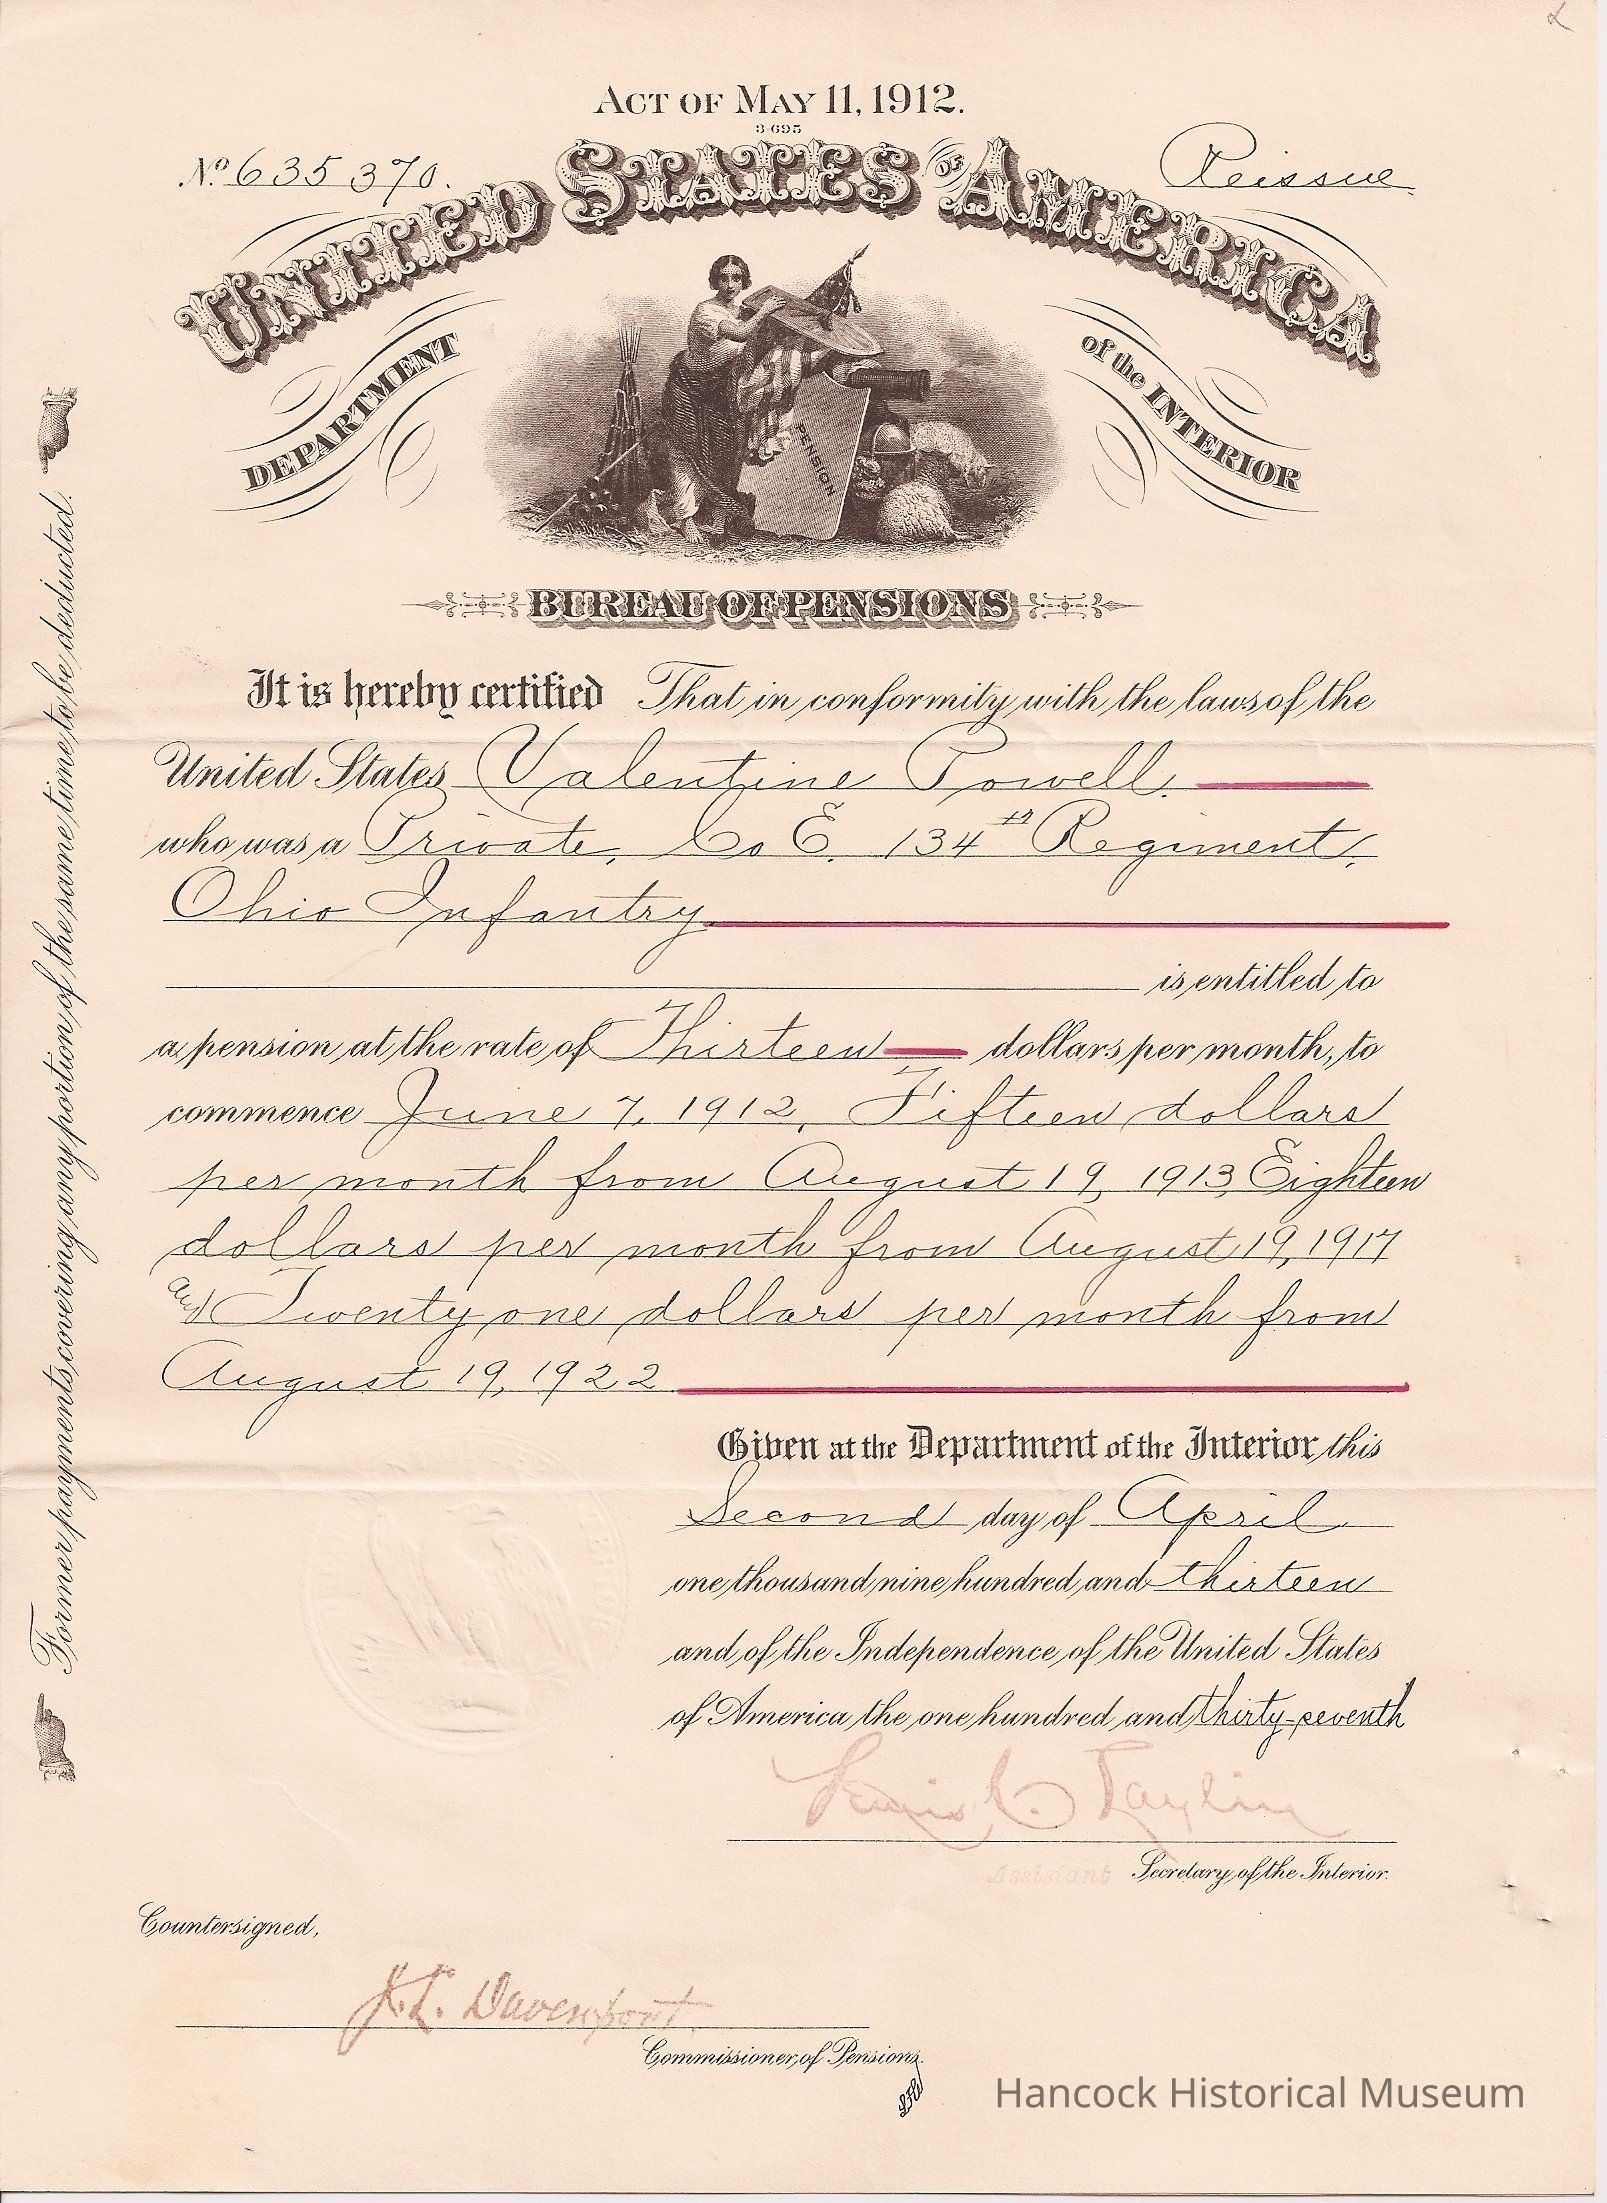 Act of May 11, 1912.
3-695
No 635370.
Reissue
United States of America
Department of the Interior
PENSION
Bureau of Pensions
It is hereby certified That in conformity with the laws of the
United States Valentine Powell.
who was a Private, Co E. 134th Regiment,
Ohio Infantry
is entitled to
a pension at the rate of Thirteen dollars per month, to
commence June 7, 1912, Fifteen dollars
per month from August 19, 1913, Eighteen
dollars per month from August 19, 1917
and Twenty one dollars per month from
August 19, 1922
Given at the Department of the Interior this
Second day of April
one thousand nine hundred and thirteen
and of the Independence of the United States
of America the one hundred and thirty-seventh
Lewis C. Laylin
Assistant Secretary of the Interior.
Countersigned,
J. L. Davenport.
Commissioner of Pensions.
Former payments covering any portion of the same time to be deducted.
Hancock Historical Museum